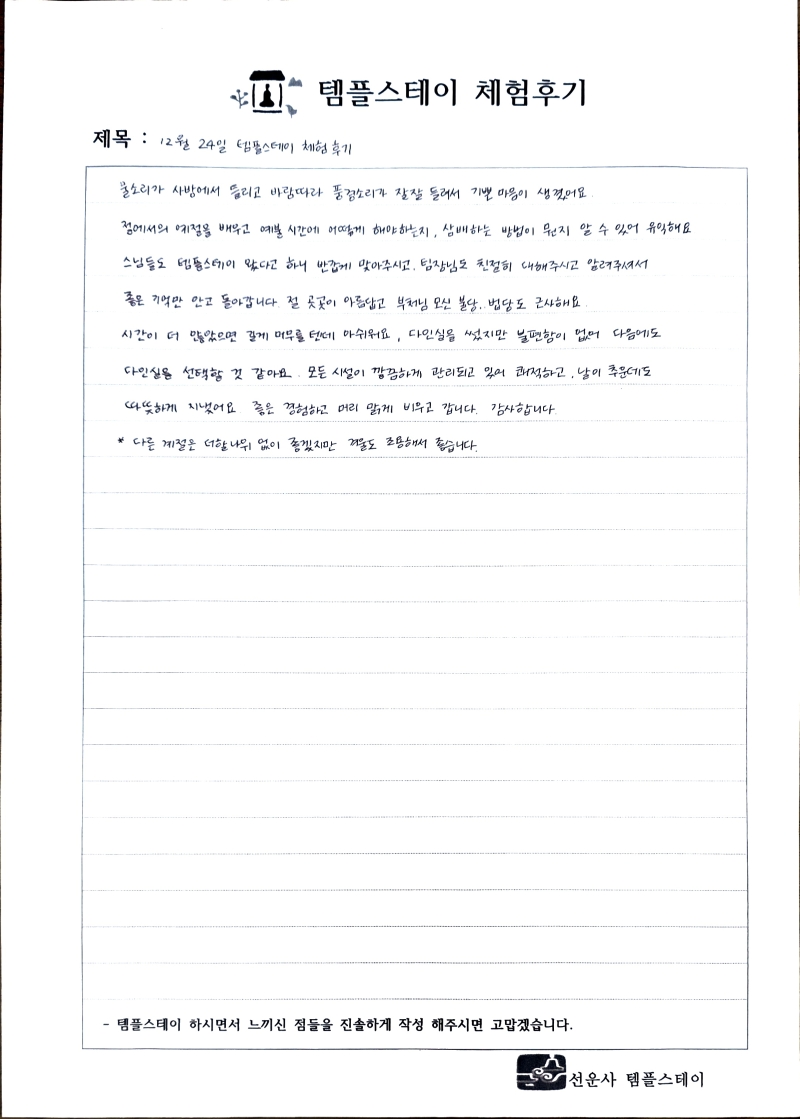 템플스테이 체험후기
제목 : 12월 24일 템플스테이 체험후기
물소리가 사방에서 들리고 바람따라 풍경소리가 잘잘 들려서 기쁜 마음이 생겼어요.
절에서의 예절을 배우고 예불 시간에 어떻게 해야하는지, 삼배하는 방법이 뭔지 알 수 있어 유익해요
스님들도 템플스테이 왔다고 하니 반갑게 맞아주시고, 팀장님도 친절히 대해주시고 알려주셔서
좋은 기억만 안고 돌아갑니다 절 곳곳이 아름답고 부처님 모신 불당, 법당도 근사해요
시간이 더 많았으면 길게 머무를텐데 아쉬워요, 다인실을 썼지만 불편함이 없어 다음에도
다인실을 선택할 것 같아요. 모든 시설이 깔끔하게 관리되고 있어 쾌적하고, 날이 추운데도
따뜻하게 지냈어요 좋은 경험하고 머리 맑게 비우고 갑니다. 감사합니다
* 다른 계절은 더할나위 없이 좋겠지만 겨울도 조용해서 좋습니다.
- 템플스테이 하시면서 느끼신 점들을 진솔하게 작성 해주시면 고맙겠습니다.
선운사 템플스테이